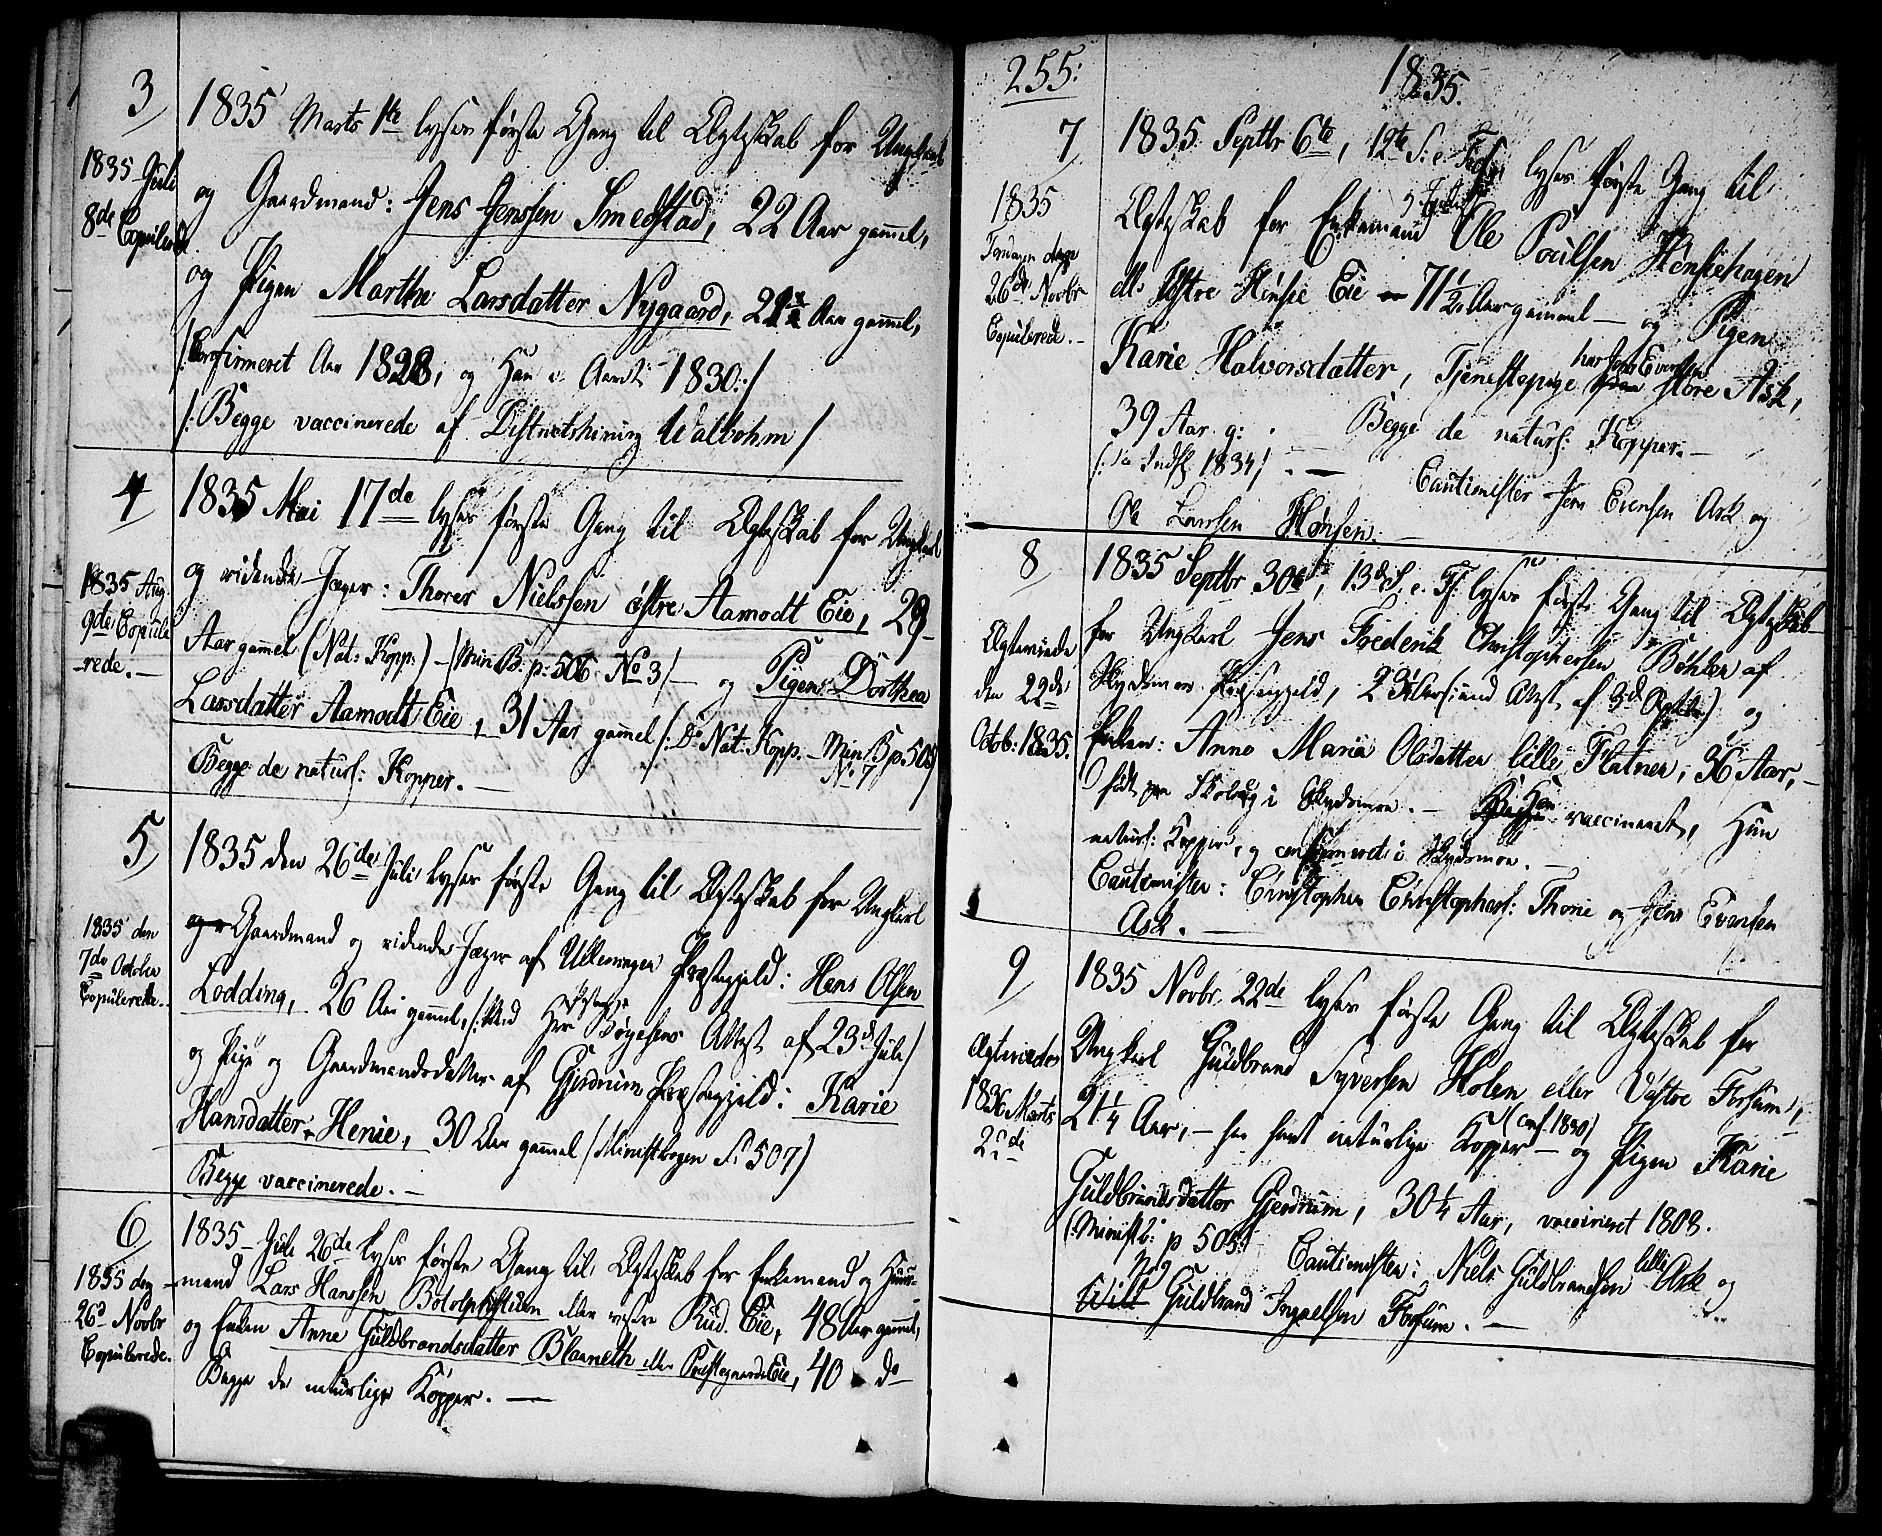 3
1835 Marts 1te lyses første Gang til Ægteskab for Ungkarl
1835 Juli
8de Copulerede
og Gaardmand: Jens Jenssen Smedstad, 22 Aar gammel,
og Pigen Marthe Larsdatter Nygaard, 21½ Aar gammel,
/:Confirmeret Aar 1828, og Han i Aaret 1830:/
/:Begge vaccinerede af Districtshirurg Walbohm/
4
1835 Mai 17de lyses første Gang til Ægteskab for Ungkarl
1835 Aug.
9de Copule
-rede.-
og ridende Jæger: Thorer Nielssen østre Aamodt Eie, 29-
Aar gammel (Nat: Kopp:) - (Min B. p: 506 No 3/ - og Pigen Dorthea
Larsdatter Aamodt Eie, 31 Aar gammel /: Do Nat: Kopp. - Min B p. 505
No 7
Begge de naturl: Kopper. -
5
1835 den 26de Juli lyses første Gang til Ægteskab for Ungkarl
1835 den
7de October
Copulerede.-
og Gaardmand og ridende Jæger af Ullensager Præstegjeld: Hans Olsen
Lodding, 26 Aar gammel, /:Med Hr Bøgehs Attest af 23d Juli/
og Pige og Gaardmandsdatter af Gjerdrum Præstegjeld: Karie
Hansdatter Henie, 30 Aar gammel / Ministbogen S: 507)
Begge vaccinerede. -
6
1835 - Juli 26de lyses første Gang til Ægteskab for Enkemand og Huus-
1835 den
26d Novbr
Copulerede.
mand Lars Hansen Bolophstuen eller vestre Rud. Eie, 48 Aar gammel,
og Enken Anne Guldbrandsdatter Blanneth eller Præstegaards Eie, 40 do
Begge de naturlige Kopper. -
255:
1835.
7
1835 Septbr 6te, 12te S: e. Tref: lyses første Gang til
1835
Torsdagen
26de Novbr
Copulerede. -
Ægteskab for Enkemand Ole Poulsen Hønsiehagen
ell: Østre Hønsie Eie - 71½ Aar gammel - og Pigen
Karie Halvorsdatter, Tjenestepige hos Jens Evensen store Ask,
39 Aar g: . Begge de naturl: Kopper. -
Indfl 1834/ . - Cautionister Jens Evensen Ask og
Ole Larssen Hønsen. -
8
1835 Septbr 30te, 13de S. e. Tf. lyses første Gang til Ægteskab
Ægteviede
den 22de
Octob: 1835.
for Ungkarl Jens Frederik Christophersen Bøhler af
Skydsmoe Præstegjeld, 23 Aar (ind Attest af 3d Septbr) og
Enken: Anne Maria Olsdatter lille Flatner, 36 Aar, -
født paa i Skydsmoe. - Han vaccineret, Hun
naturl: Kopper, og confirmeret i Skydsmoe. -
Cautionister: Christopher Christophers: Thorie og Jens Evensen
Ask. -
9
1835 Novbr. 22de lyses første Gang til Ægteskab for
Ægteviedes
1836 Marts
2de
Ungkarl Guldbrand Syversen Holen eller Vestre Forsum,
21¼ Aar, - har havt naturlige Kopper (conf. 1830) - og Pigen Karie
Guldbrandsdatter Gjerdrum, 30¼ Aar, vaccineret 1808.
(Ministb: p 505:
No 9 Cautionister: Niels Guldbrandsen lille Ask og
Guldbrand Ingvelsen Forsum. -